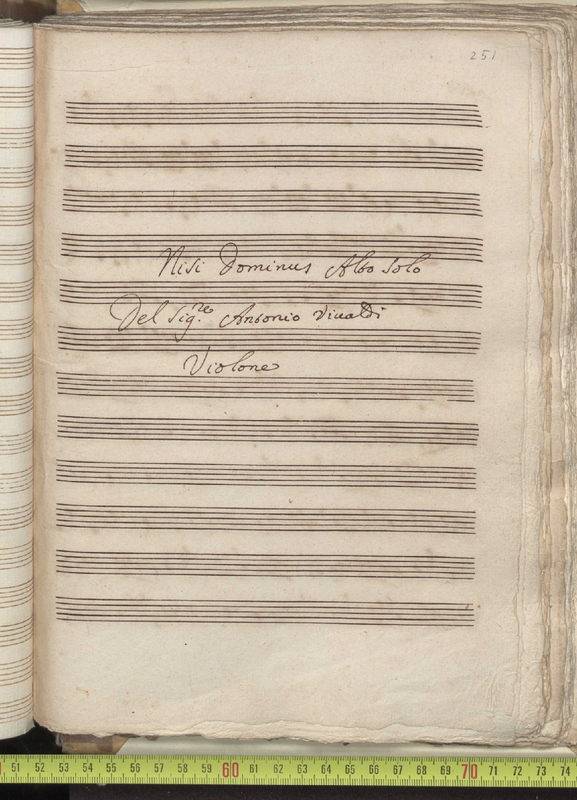 251
Nisi Dominus Alto Solo
Del Sig.re Antonio Vivaldi
Violone
51 52 53 54 55 56 57 58 59 60 61 62 63 64 65 66 67 68 69 70 71 72 73 74